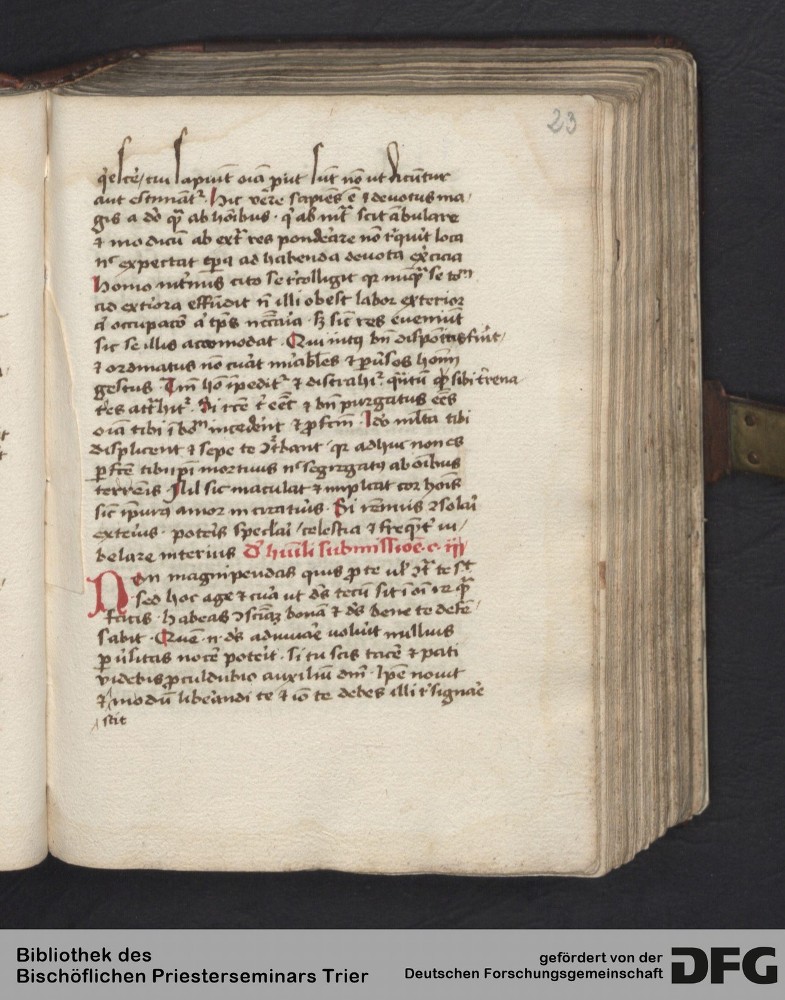 23
q̇esce͛/cui sapiu͛t oi͛a p̱ut su͛t no͛ ut dicu͛tur
aut estimāt᷑. Hic ve͛re sapie͛s ē ⁊ devotus ma
gis a dō qᷓ ab ho͛ibus. q͛ ab int᷑ scit a͛bulare
⁊ modicū ab ext᷑ res ponde͛are no͛ r͛quīt loca
n͛ expectat tp̄a ad habenda devota ex͛cicia
Homo int͛nus cito se r͛colligit qr nūqᷓ se totū
ad exti͛ora effūdit n͛ illi obest labor exterior
a͛ occupatō a͛ tp̄s ncc̄aria. sꝫ sic͛ res eveniūt
sic se illis accomodat. Qui intꝯ bn̄ dispositꝯ fu͛it
⁊ ordinatus no͛ cu͛at mi͛abiles ⁊ p̱u͛sos homī
gestus. Tm̄ ho͛ īpedit᷑ ⁊ distrahit᷑ q͛ntū qꝫ sibi t͛rena
res att͛hit᷑. Si r͛cē t͛ ee͛t ⁊ bn̄ purgatus ee͛s
oīa tibi ī bonū incederēt ⁊ ꝓfc͛m. Ideo ml̄ta tibi
displicent ⁊ sepe te ꝯt᷑bant. qr adhuc non es
p̱fc͛e tibiip̄i mortuus n͛ segregatꝯ ab oībus
terrēis. Nil sic maculat ⁊ inplicat cor hoīs
sic͛ īpurꝯ amor in creatu͛is. Si renuis ꝯsolari
exteriꝯ. poteris specl̄ari celestia ⁊ freqn̄t͛ iu
belare interius D͛ hūili submissiōe. c. iij
Non magnipendas quis p̱ te ul̄ ꝯt᷑ te sit
sed hoc age ⁊ cura ut ds̄ tecū sit ī oī re qᷓ
facis. habeas ꝯsciāꝫ bonā ⁊ ds̄ bene te defē
sabit. Quē .n. ds̄ adiuvare volu͛it nullius
p̱u͛sitas noce͛ pote͛it. si tu scis tacē ⁊ pati
videbis ꝓculdubio auxiliū dm̄. Ipse novit
⁊ modū liberandi te ⁊ iō te debes illi r͛signare
scit
Bibliothek des
Bischöflichen Priesterseminars Trier
gefördert von der
Deutschen Forschungsgemeinschaft
DFG